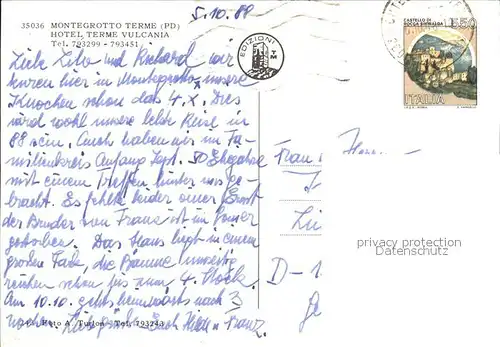 5.10.88
35036 MONTEGROTTO TERME (PD)
HOTEL TERME VULCANIA
Tel. 793299 - 793451
EDIZIONI
TM
CASTELLO DI
ROCCA SINIBALDA
L550
ITALIA
Liebe und Richard wir
kuren hier in Montegrotto unsere
Knochen schon das 4. x. Dies
wird wohl unsere letzte Reise in
88 sein. Auch haben wir im Fa-
milienkreis Anfang Sept. 50 Ehejahre
mit einem Treffen hinter uns ge-
bracht. Es fehlte leider einer Ernst
der Bruder von Franz ist im
gestorben. Das Haus liegt in einem
großen Park, die Bäume
reichen schon bis zum 4. Stock.
Am 10.10. gehts heimwärts nach 3
Wochen. Euch Hilde u. Franz.
Frau
Herr
D-1
privacy protection
watermark
Foto A. Turlon - Tel. 793243